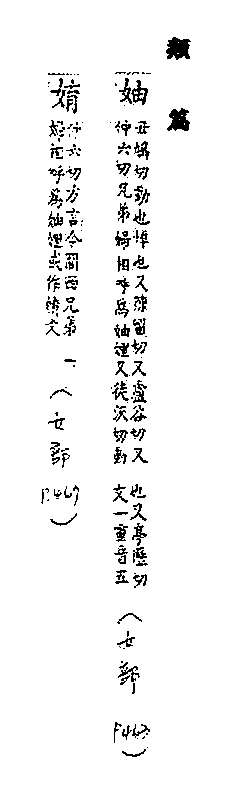 類篇
妯
丑鳩切動也悼也又陳留切又盧谷切又
仲六切兄弟婦相呼爲妯娌又徒沃切動
也又亭歷切
文一重音五
(女部 P.463)
仲六切方言今關西兄弟
婦相呼爲妯娌或作 文
一 (女部 P.469)